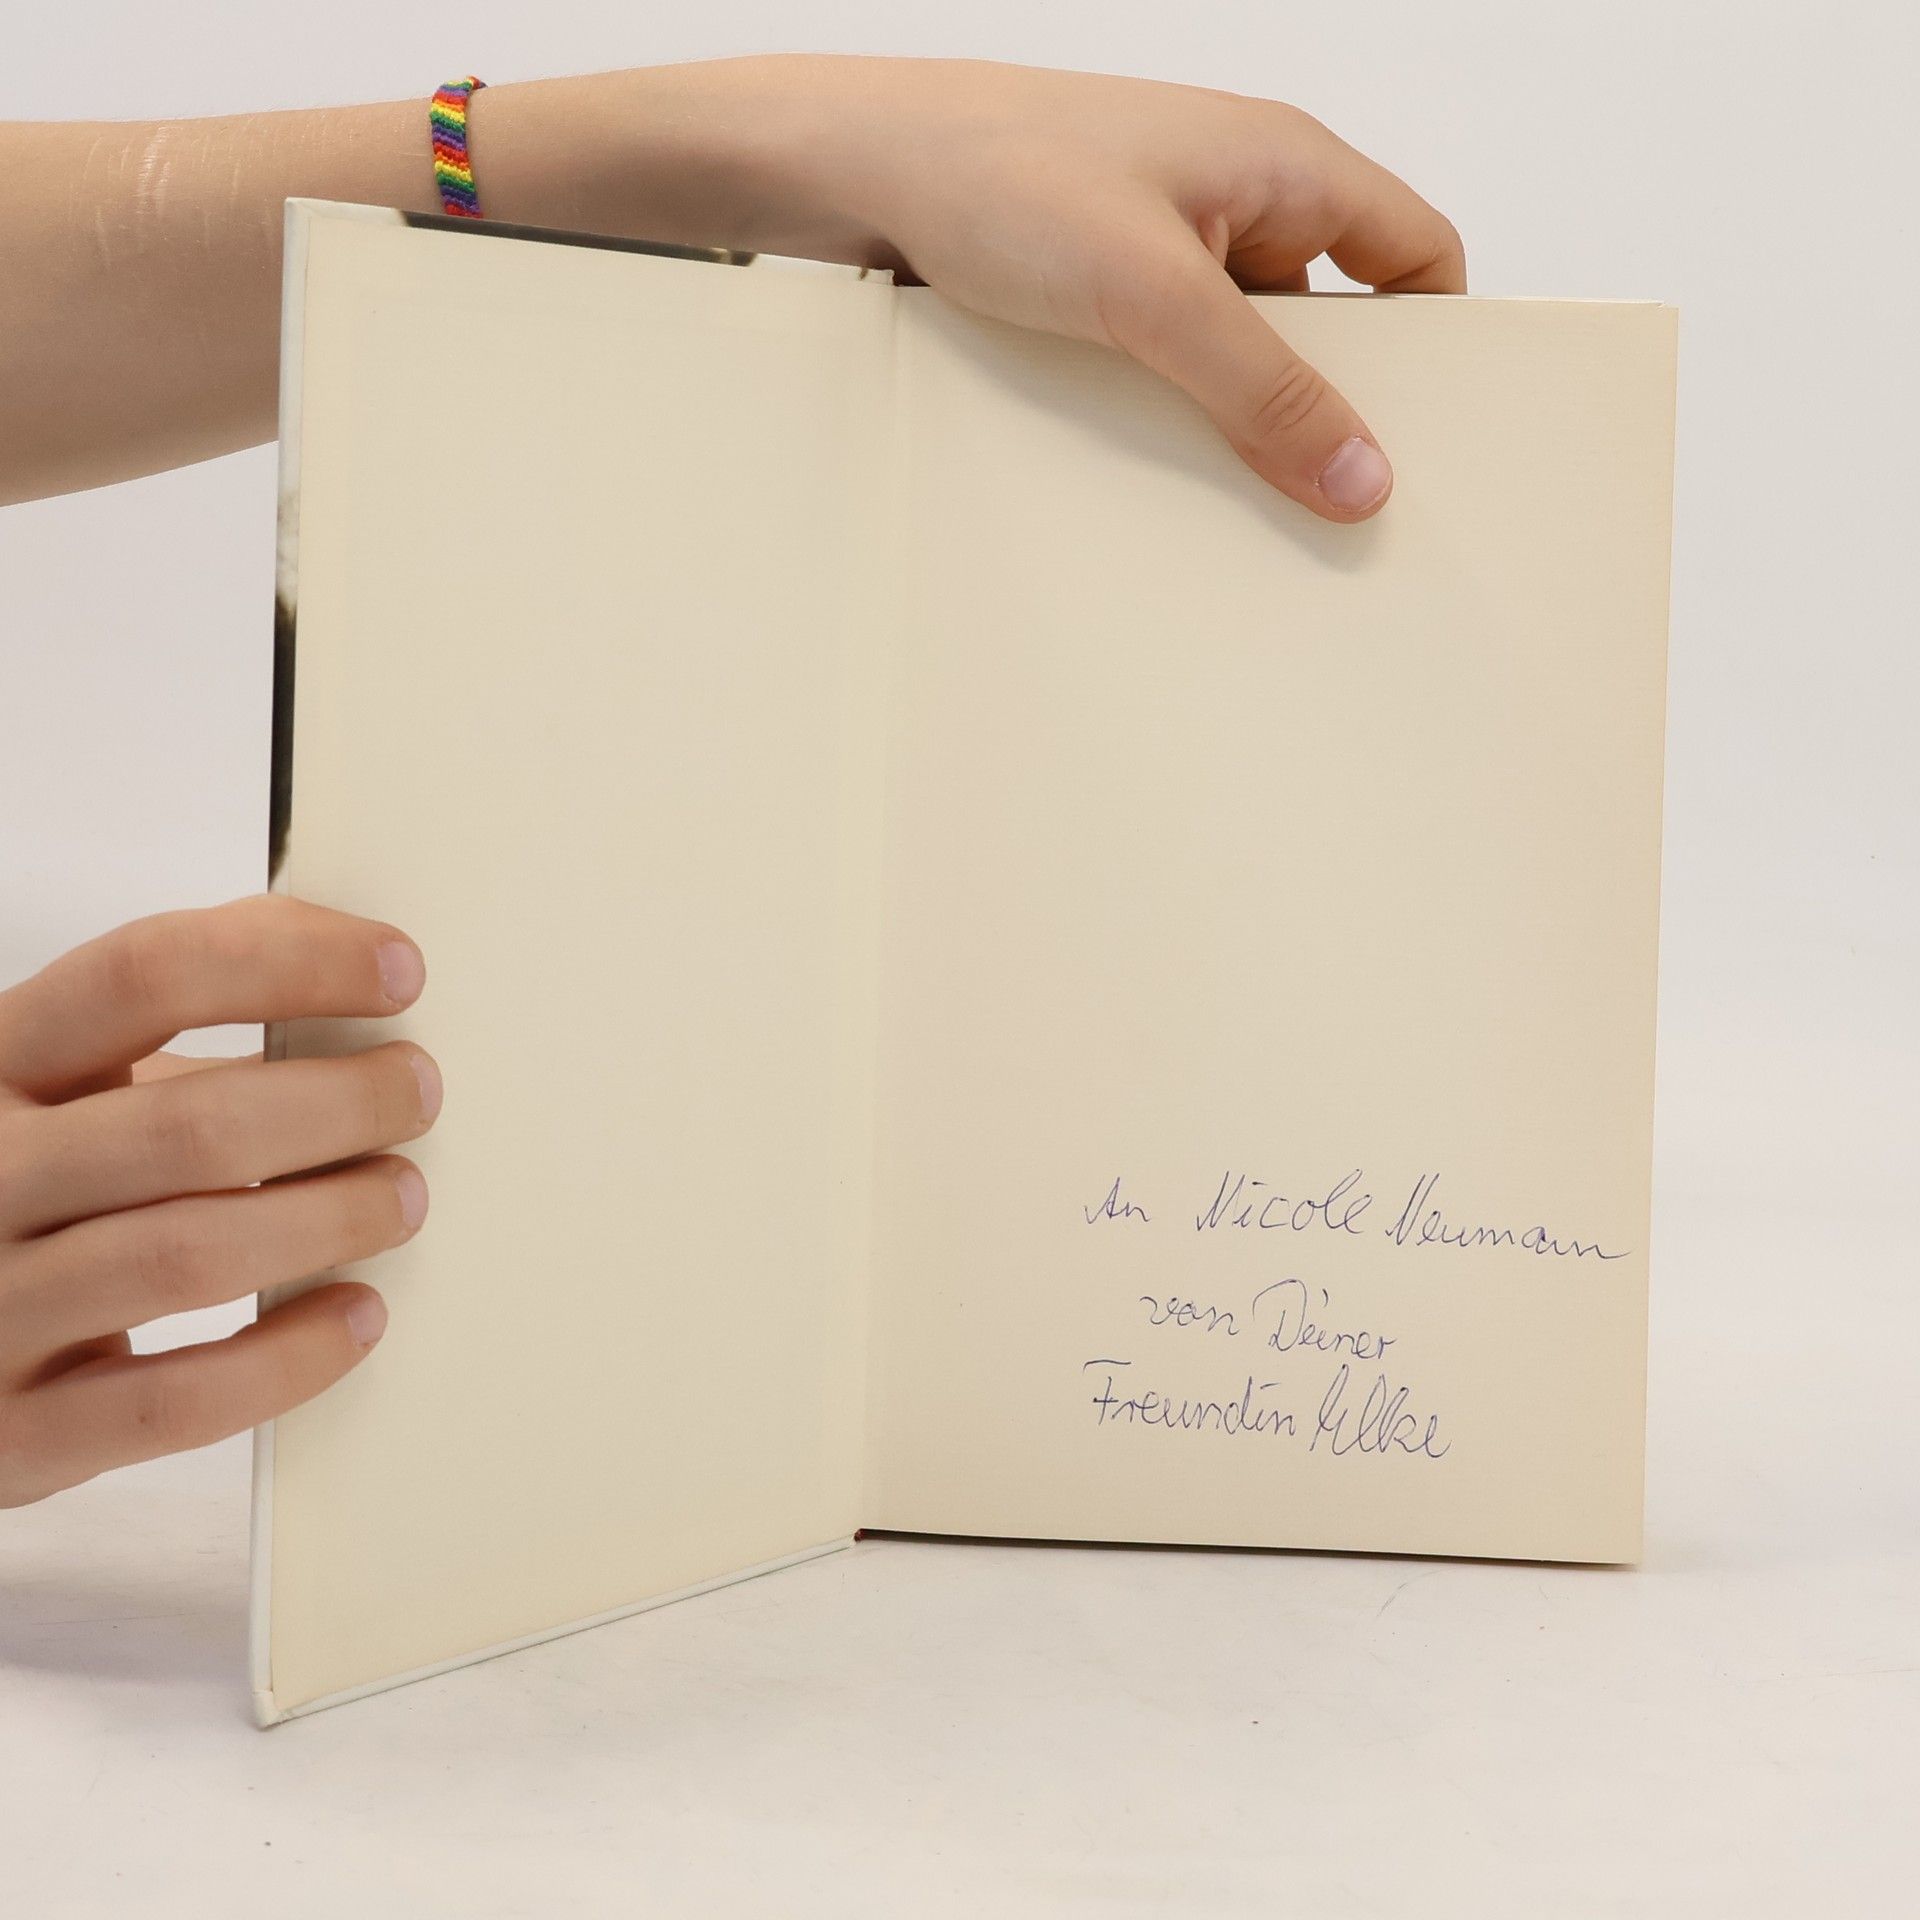 An Nicole Neumann
von Deiner
Freundin Elke